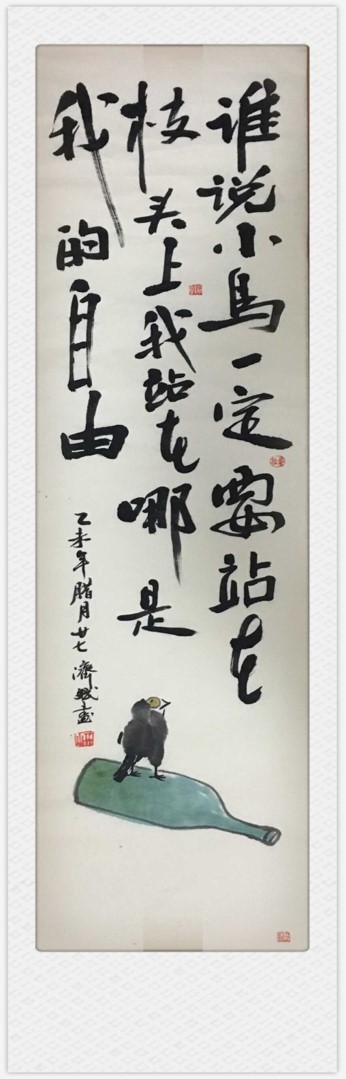 谁说小鳥一定要站在
枝头上我站在哪是
我的自由
乙未年腊月廿七濟